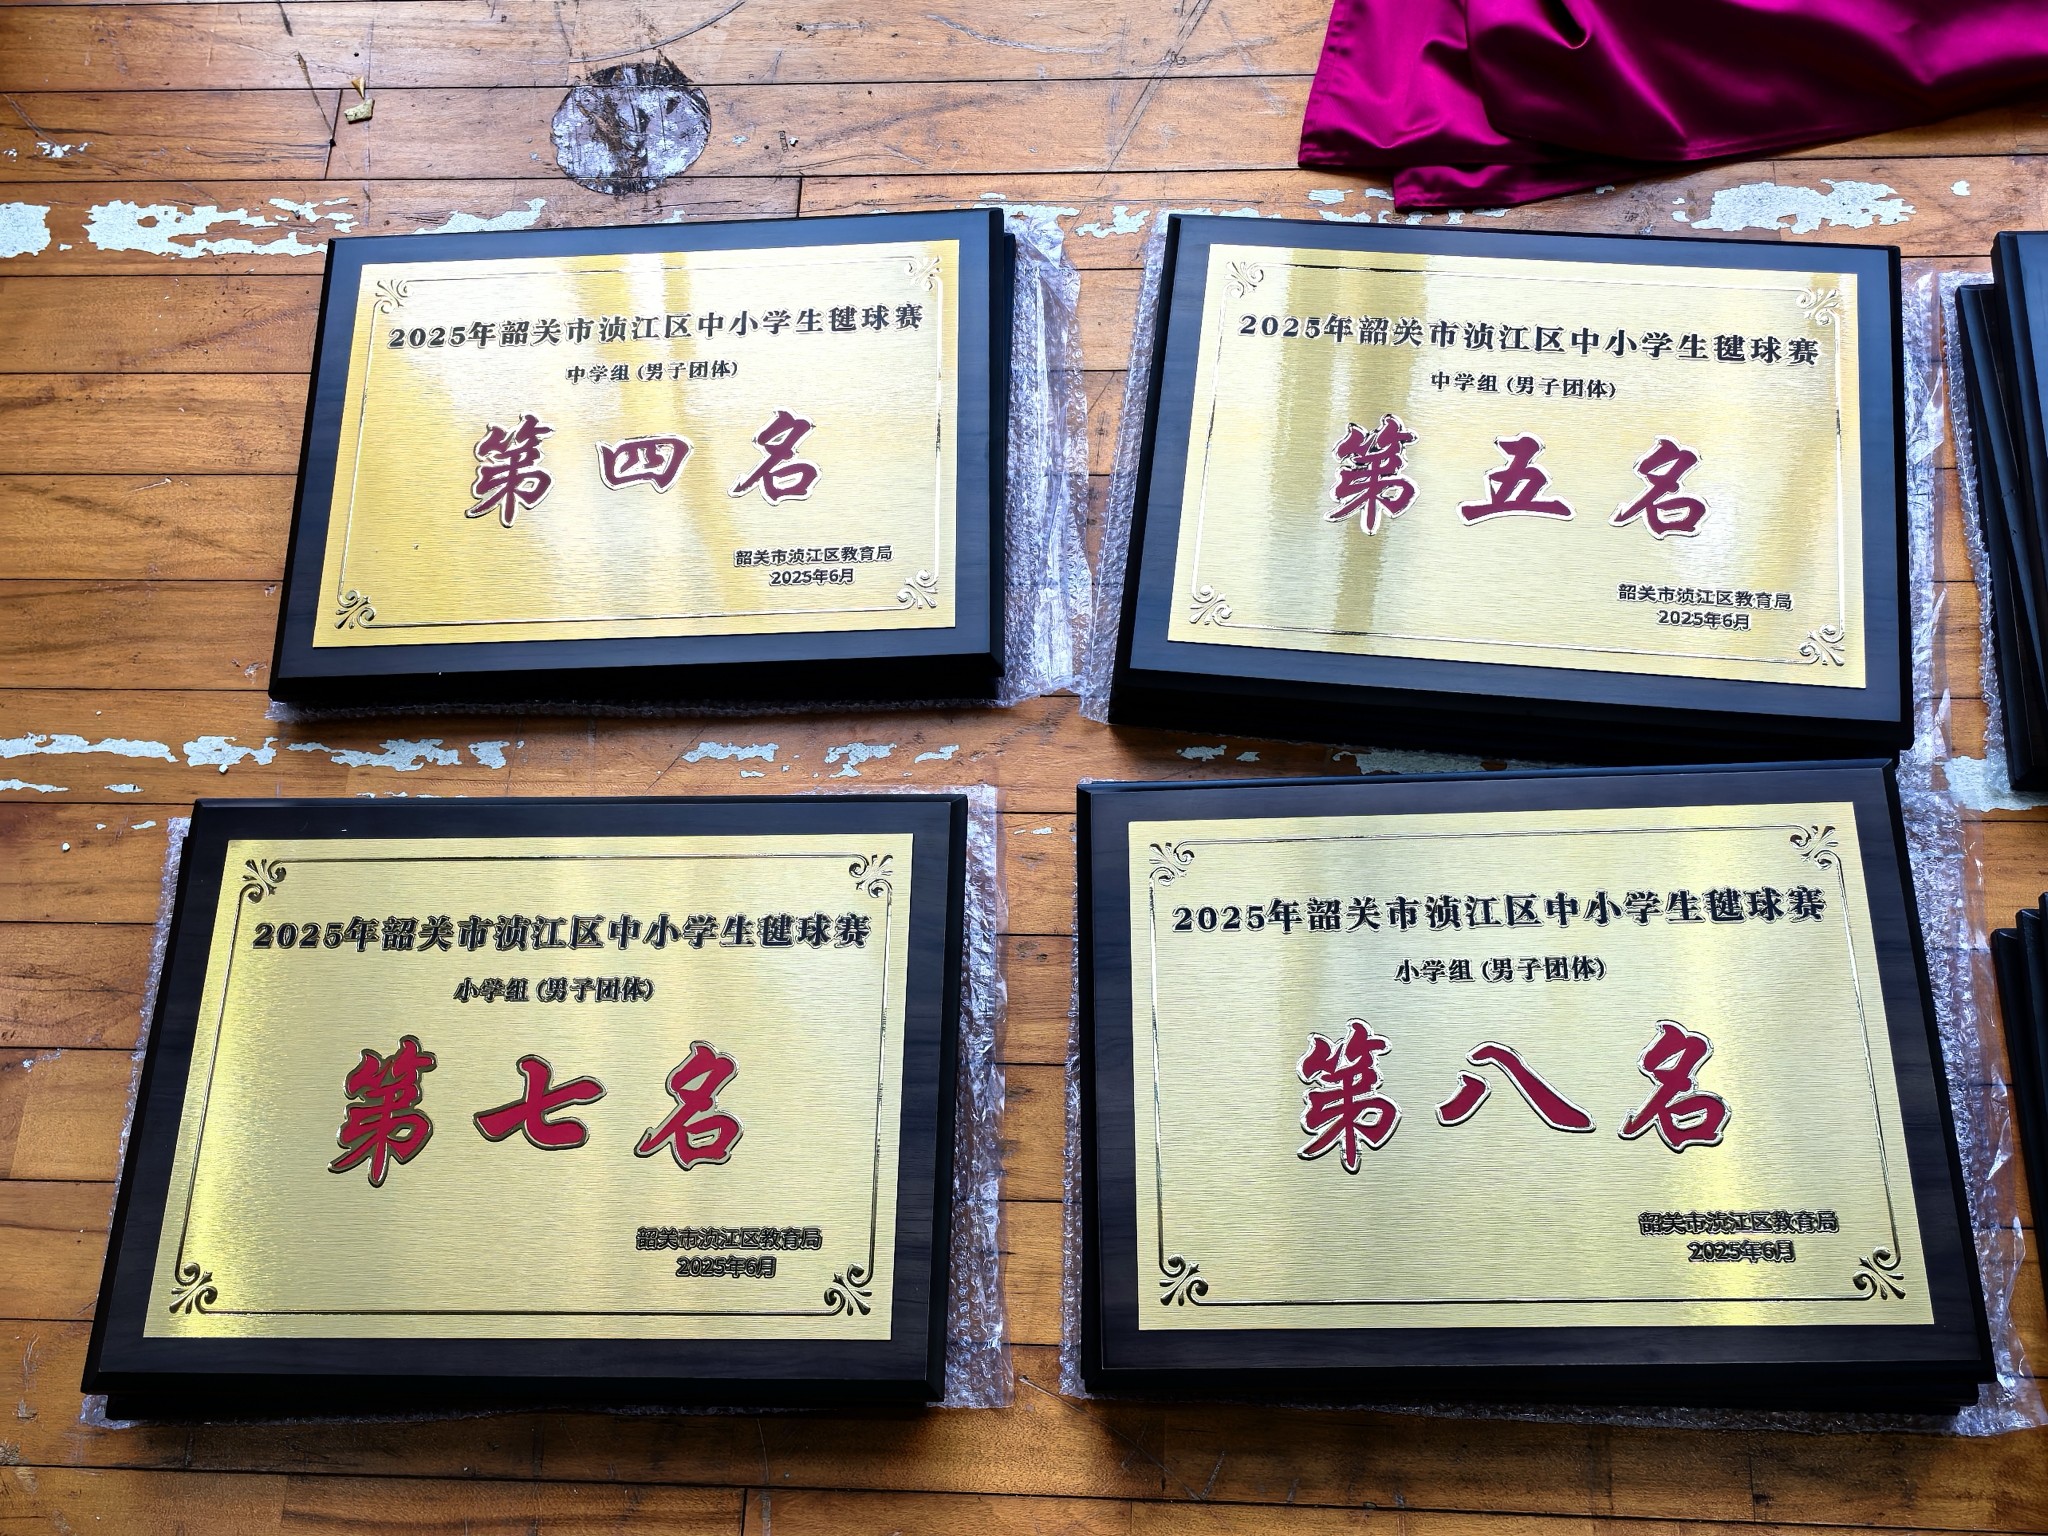 2025年韶关市浈江区中小学生毽球赛
中学组(男子团体)
第四名
韶关市浈江区教育局
2025年6月
2025年韶关市浈江区中小学生毽球赛
中学组(男子团体)
第五名
韶关市浈江区教育局
2025年6月
2025年韶关市浈江区中小学生毽球赛
小学组(男子团体)
第七名
韶关市浈江区教育局
2025年6月
2025年韶关市浈江区中小学生毽球赛
小学组(男子团体)
第八名
韶关市浈江区教育局
2025年6月